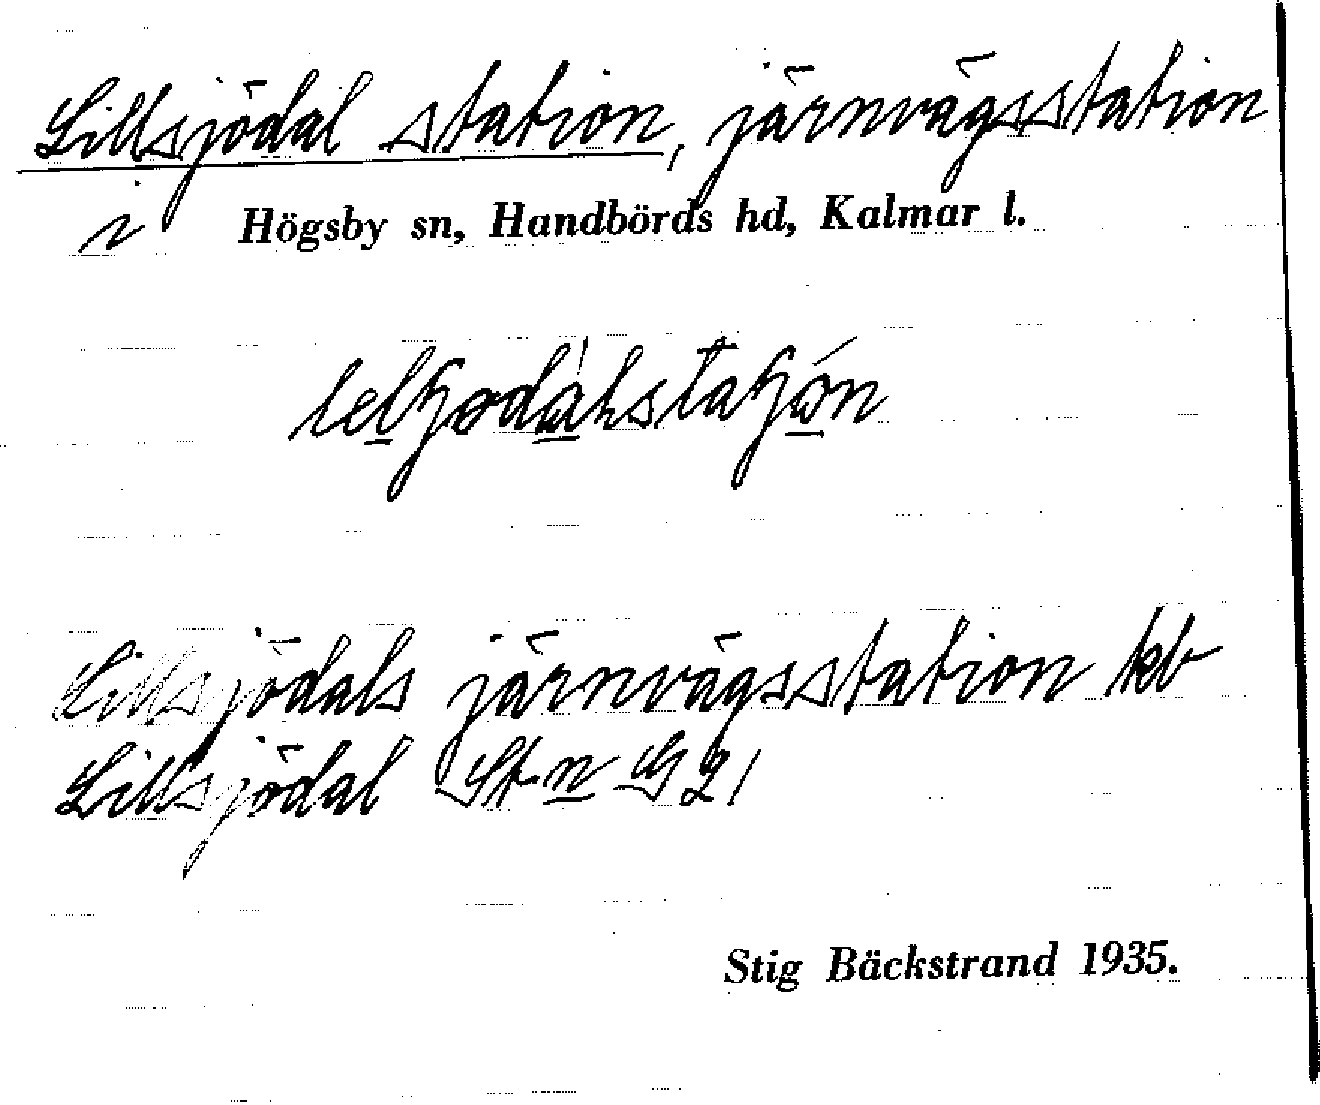 Lillsjödal station, järnvägsstation
i Högsby sn, Handbörds hd, Kalmar l.
Lillsjödals järnvägsstation kb
Lillsjödal Stn G 21
Stig Bäckstrand 1935.